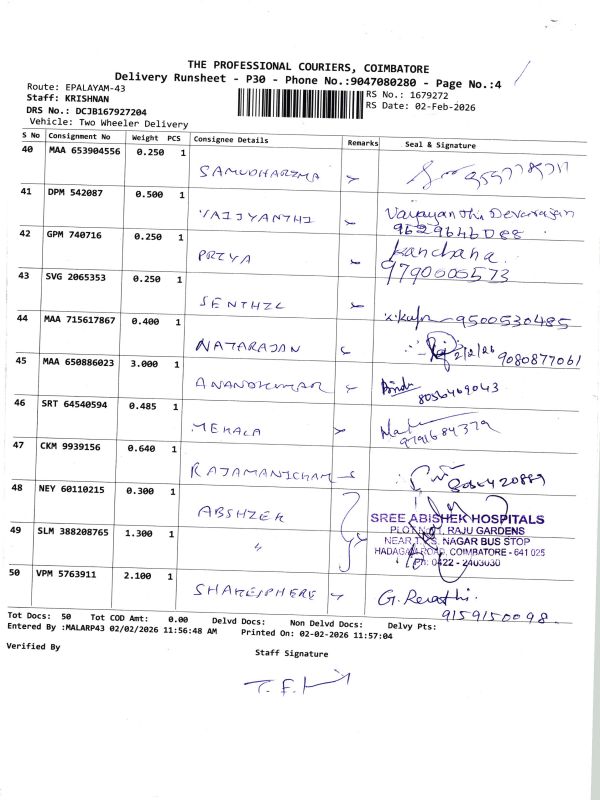 THE PROFESSIONAL COURIERS, COIMBATORE
Delivery Runsheet - P30 - Phone No.:9047080280 - Page No.:4
Route: EPALAYAM-43
Staff: KRISHNAN
DRS No.: DCJB167927204
Vehicle: Two Wheeler Delivery
RS No.: 1679272
RS Date: 02-Feb-2026
S No Consignment No Weight PCS Consignee Details Remarks Seal & Signature
40 MAA 653904556 0.250 1 SAMUDHARIMA
41 DPM 542087 0.500 1 VAIJYANTHI Vaijayanthi Devarajan
9629646088
42 GPM 740716 0.250 1 PRIYA Kanchana.
9790005573
43 SVG 2065353 0.250 1 SENTHIL 9500530485
44 MAA 715617867 0.400 1 NATARAJAN 2/2/26 9080877061
45 MAA 650886023 3.000 1 ANANDKUMAR 8056469043
46 SRT 64540594 0.485 1 MEKALA 9791684379
47 CKM 9939156 0.640 1 RAJAMANICKAM
48 NEY 60110215 0.300 1 ABSHIEK
49 SLM 388208765 1.300 1 "
SREE ABISHEK HOSPITALS
RAJU GARDENS
NAGAR BUS STOP
ROAD, COIMBATORE - 641 025
Ph: 0422 - 2403030
50 VPM 5763911 2.100 1 SHAKESPHERE G. Revathi.
9159150098.
Tot Docs: 50 Tot COD Amt: 0.00 Delvd Docs: Non Delvd Docs: Delvy Pts:
Entered By :MALARP43 02/02/2026 11:56:48 AM Printed On: 02-02-2026 11:57:04
Verified By
Staff Signature